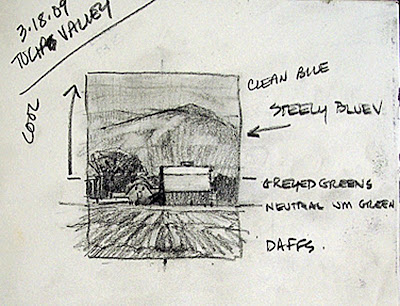 3.18.09
VALLEY
COOL
CLEAN BLUE
STEELY BLUEV
GREYED GREENS
NEUTRAL WM GREEN
DAFFS.